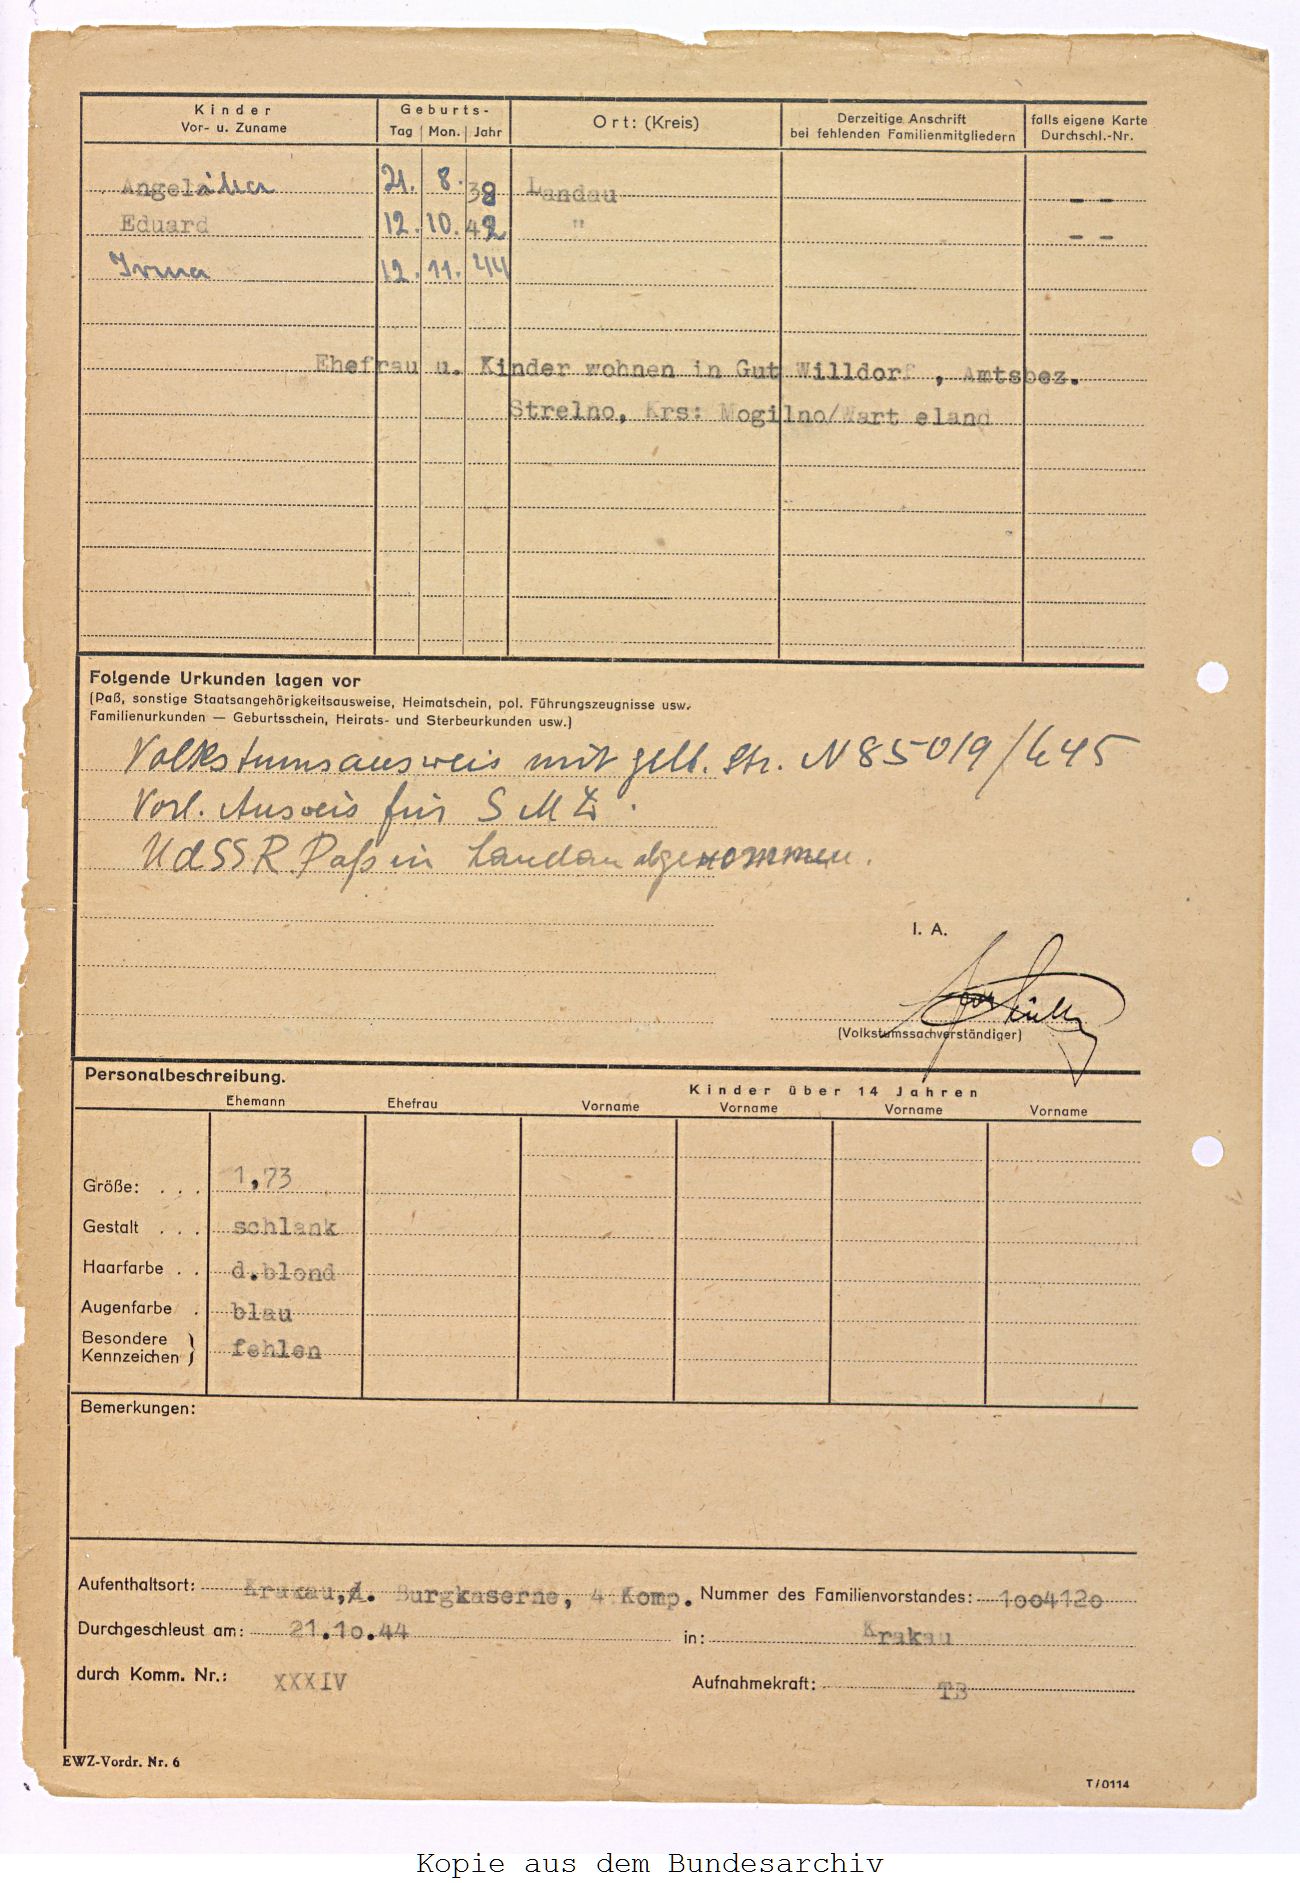 Kinder
Vor- u. Zuname
Geburts-
Tag Mon. Jahr
Ort: (Kreis)
Derzeitige Anschrift
bei fehlenden Familienmitgliedern
falls eigene Karte
Durchschl.-Nr.
Angelika 21. 8. 38 Landau – –
Eduard 12. 10. 42 " – –
Irma 12. 11. 44
Ehefrau u. Kinder wohnen in Gut Willdorf , Amtsbez.
Strelno, Krs: Mogilno/Wart eland
Folgende Urkunden lagen vor
(Paß, sonstige Staatsangehörigkeitsausweise, Heimatschein, pol. Führungszeugnisse usw.
Familienurkunden — Geburtsschein, Heirats- und Sterbeurkunden usw.)
Volkstumsausweis mit gelb. Str. N 85019/445
Vorl. Ausweis für
UdSSR. Paß in Landau abgenommen.
I. A.
(Volkstumssachverständiger)
Personalbeschreibung.
Ehemann Ehefrau
Kinder über 14 Jahren
Vorname Vorname Vorname Vorname
Größe: . . . 1,73
Gestalt . . . schlank
Haarfarbe . . d.blond
Augenfarbe . blau
Besondere
Kennzeichen } fehlen
Bemerkungen:
Aufenthaltsort: Krakau,A. Burgkaserne, 4 Komp. Nummer des Familienvorstandes: 1004120
Durchgeschleust am: 21.10.44 in: Krakau
durch Komm. Nr.: XXXIV Aufnahmekraft: TB
EWZ-Vordr. Nr. 6
T/0114
Kopie aus dem Bundesarchiv